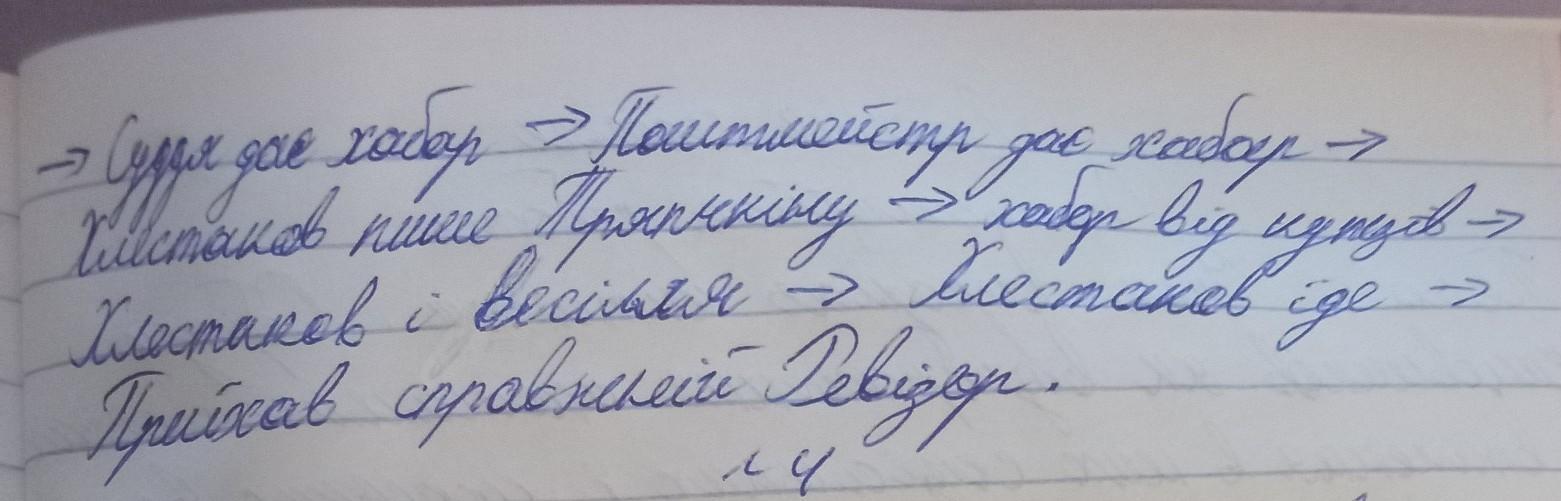 → Суддя дає хабар → Поштмейстр дає хабар →
Хлестаков пише Тряпічкіну → хабар від купців →
Хлестаков і весілля → Хлестаков їде →
Приїхав справжній Ревізор.